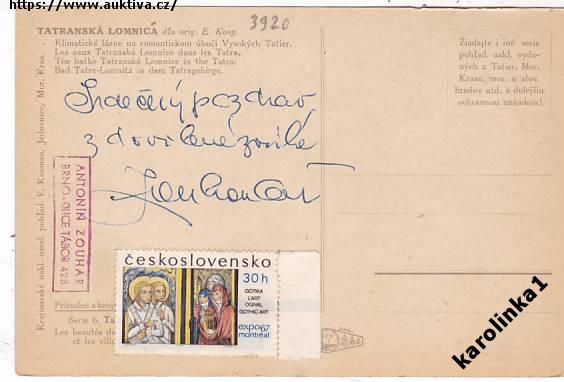 https://www.auktiva.cz/
3920
TATRANSKÁ LOMNICA dľa orig. E. Kosy.
Klimatické lázne na romantickom úbočí Vysokých Tatier.
Les eaux Tatranská Lomnice dans les Tatra.
The baths Tatranská Lomnice in the Tatra.
Bad Tatra-Lomnitz in dem Tatragebirge.
Žiadajte i iné serie
pohľad. nakl. vydaných
z Tatier, Mor.
Krasu, mor. a slov.
hradov atd. s dolejšiu
ochrannou známkou!
Srdečný pozdrav
z dovolené zasílá
ANTONÍN ZOUHAR
BRNO-ULICE TÁBOR 42B
Krajinarské nakl. umel. pohľad. F. Kocman, Jedovnice, Mor. Kras.
Přírodné a kraj
Serie 6. Ta
Les beautés de
et les vill
československo
30 h
GOTIKA
L'ART
OGIVAL
GOTHIC ART
expo67
montréal
karolinka1